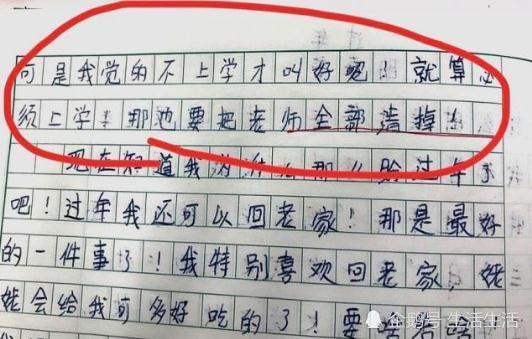 可是我觉的不上学才叫好吧！就算必
须上学！那也要把老师全部清掉！
现在知道我为什么那么盼过年了
吧！过年我还可以回老家！那是最好
的一件事了！我特别喜欢回老家，姥
姥会给我可多好吃的了！要啥有啥
企鹅号 生活生活